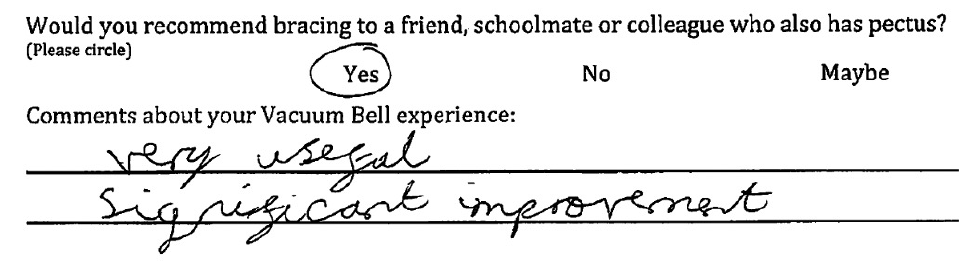 Would you recommend bracing to a friend, schoolmate or colleague who also has pectus?
(Please circle)
Yes No Maybe
Comments about your Vacuum Bell experience:
very usefal
significant improvement